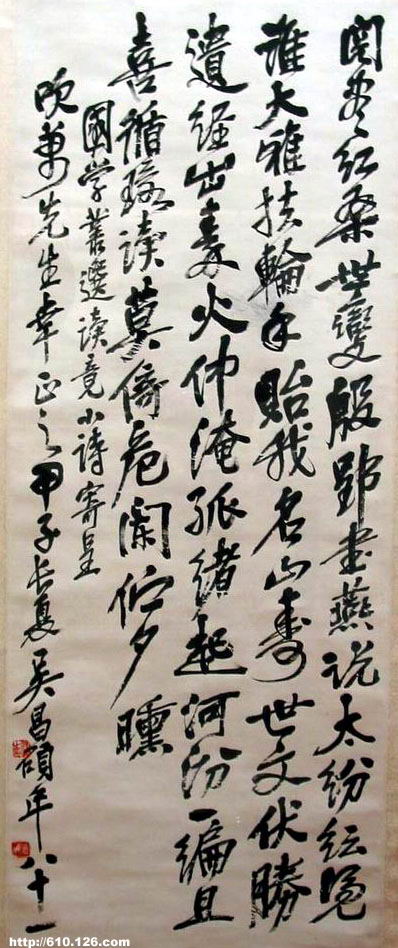 閱盡紅桑世變殷郢書燕說太紛紜
誰大雅扶輪手貽我名山壽世文伏勝
遺經出秦火仲淹孤緒起河汾一編且
喜循環讀莫倚危闌佇夕曛
國學叢選讀竟小詩寄呈
吹萬先生幸正之甲子長夏吳昌碩年八十一
http://610.126.com